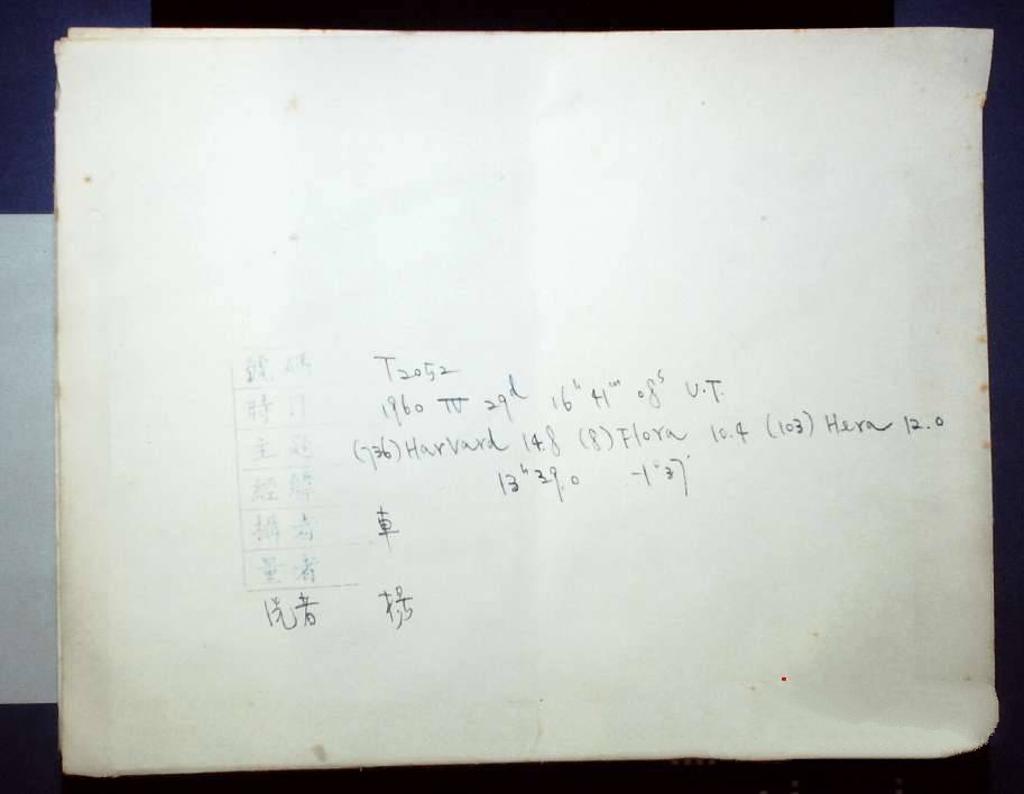 號碼 T2052
時日 1960 IV 29d 16h 41m 08s U.T.
主題 (736) Harvard 14.8 (8) Flora 10.4 (103) Hera 12.0
經緯 13h 39.0 -1°37'
攝者 車
量者
洗者 楊